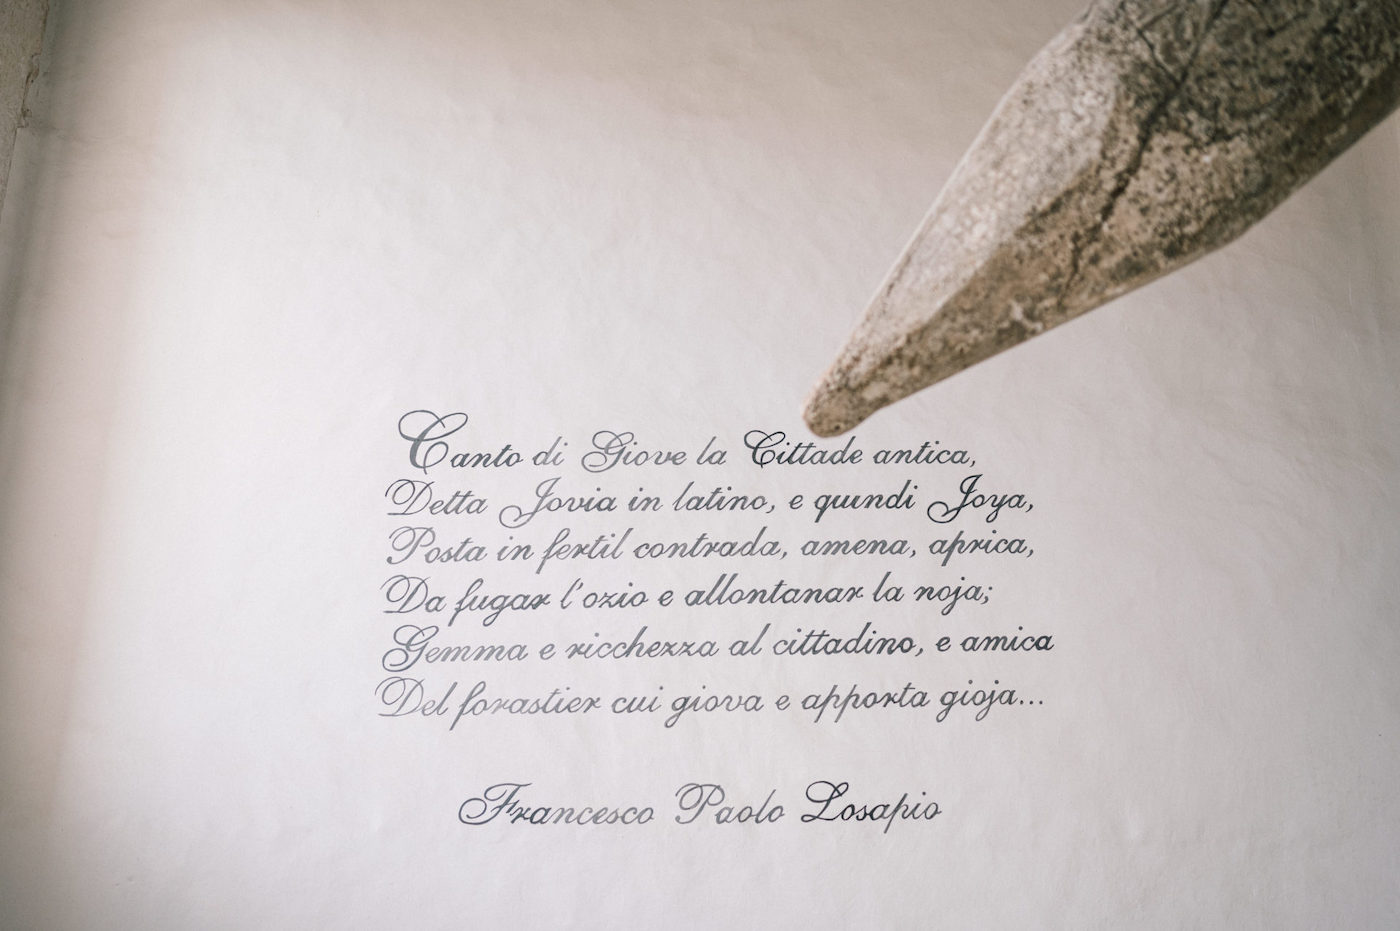 Canto di Giove la Cittade antica,
Detta Jovia in latino, e quindi Joya,
Posta in fertil contrada, amena, aprica,
Da fugar l'ozio e allontanar la noja;
Gemma e ricchezza al cittadino, e amica
Del forastier cui giova e apporta gioja...
Francesco Paolo Losapio